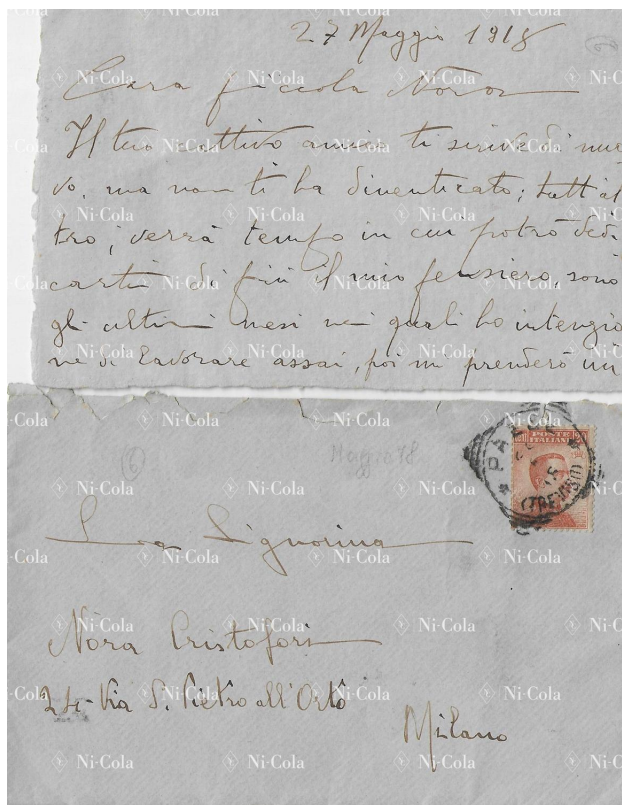 27 Maggio 1918
Cara piccola Nora
Il tuo cattivo amico ti scrive di nuo
vo, ma non ti ha dimenticato; tutt'al
tro; verrà tempo in cui potrò dedi
carti di più il mio pensiero, sono
gli ultimi mesi nei quali ho intenzio
ne di lavorare assai, poi mi prenderò un
6
Maggio 18
6
POSTE
ITALIANE
(TREVISO)
La Signorina
Nora Cristofori
24 - Via S. Pietro all'Orto
Milano
Ni-Cola